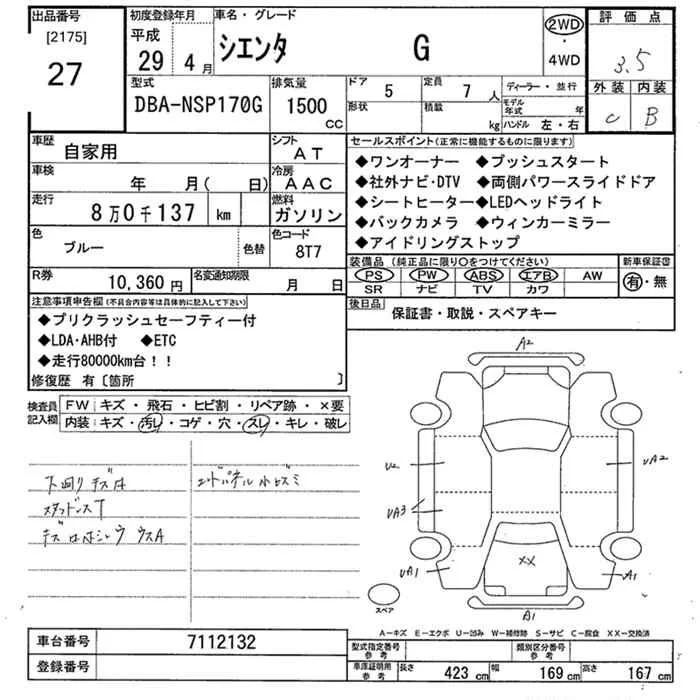 出品番号 初度登録年月 車名・グレード 2WD ・ 4WD 評価点
[2175] 27 平成 29 4月 シエンタ G 3.5
型式 排気量 ドア 5 定員 7人 ディーラー・並行 外装 内装
DBA-NSP170G 1500 CC 形状 積載 kg モデル年式 年 ハンドル 左・右 C B
車歴 自家用 シフト AT セールスポイント(正常に機能するものに限ります)
車検 年 月( 日) 冷房 AAC ◆ワンオーナー ◆プッシュスタート
走行 8万0千137 km 燃料 ガソリン ◆社外ナビ・DTV ◆両側パワースライドドア
色 ブルー 色替 色コード 8T7 ◆シートヒーター◆LEDヘッドライト
◆バックカメラ ◆ウィンカーミラー
◆アイドリングストップ
R券 10,360円 名変通知期限 月 日 装備品 (純正品に限り○をつけてください) 新車保証書
PS PW ABS エアB AW 有・無
SR ナビ TV カワ
注意事項申告欄(不具合内容等は具体的に記入して下さい) 後日品 保証書・取説・スペアキー
◆プリクラッシュセーフティー付
◆LDA・AHB付 ◆ETC
◆走行80000km台!!
修復歴 有〔箇所 〕
検査員記入欄 FW キズ・飛石・ヒビ割・リペア跡・×要
内装 キズ・汚レ・コゲ・穴・スレ・キレ・破レ
下廻り
A2
U2 UA2
UA3
UA1 XX A1
A1
スペア
A-キズ E-エクボ U-凹み W-補修跡 S-サビ C-腐食 XX-交換済
車台番号 7112132 型式指定番号 参考 類別区分番号 参考
登録番号 車庫証明用 参考 長さ 423 cm 幅 169 cm 高さ 167 cm